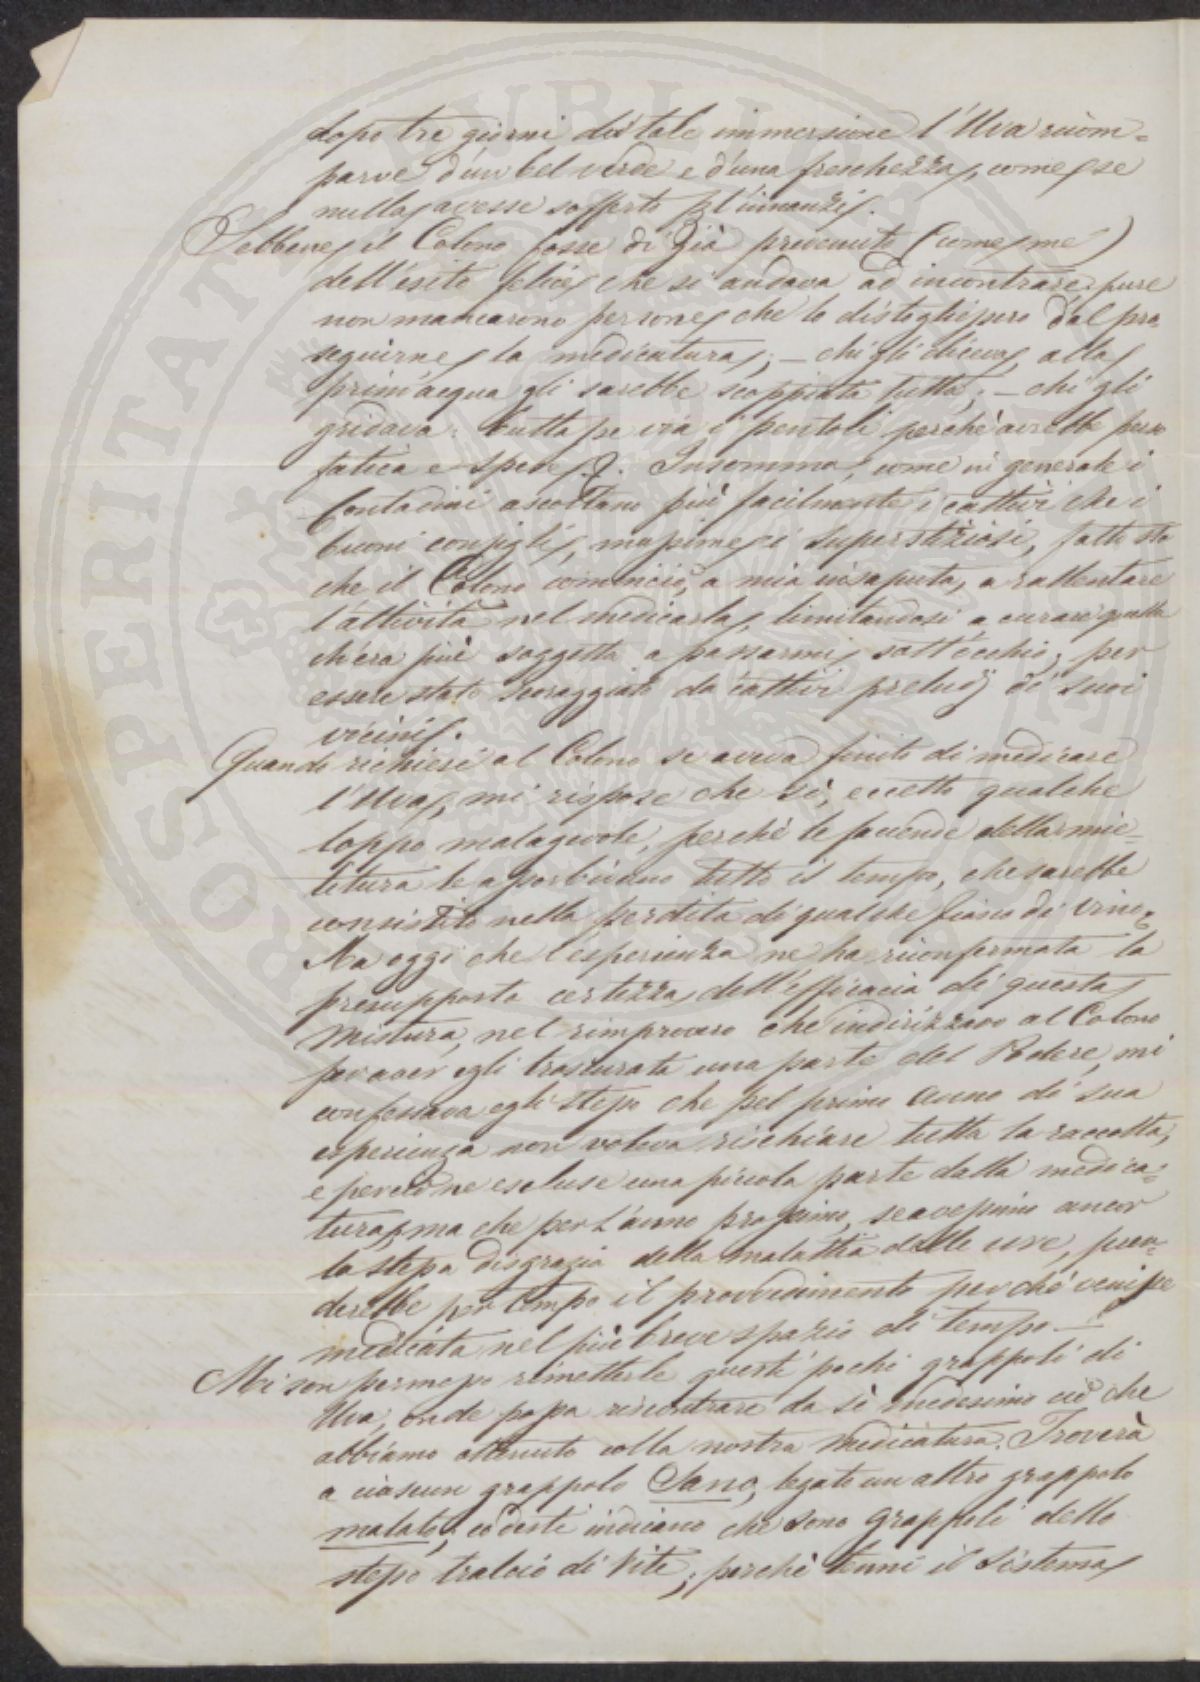 dopo tre giorni di tale immersione l'Uva ricom=
parve d'un bel verde e d'una freschezza, come se
nulla avesse sofferto pl'innanzi.
Sebbene il Colono fosse di già prevenuto (come me)
dell'esito felice che si andava ad incontrare, pure
non mancarono persone che lo distogliessero dal pro=
seguirne la medicatura; — chi gli diceva, alla
prim'acqua gli sarebbe scoppiata tutta; — chi gli
gridava: butta pe via i pentoli perchè avrebbe perso
fatica e spese. Insomma, come in generale i
Contadini ascoltano più facilmente i cattivi che i
buoni consigli, massime i superstiziosi, fatto sta
che il Colono cominciò, a mia insaputa, a rallentare
l'attività nel medicarla, limitandosi a curare quella
ch'era più soggetta a passarmi sott'occhio; per
essere stato scoraggiato da cattivi preludj de' suoi
vicini.
Quando richiesi al Colono se aveva finito di medicare
l'Uva, mi rispose che sì, eccetto qualche
loppo malagevole, perchè le faccende della mie=
titura le assorbivano tutto il tempo, che sarebbe
consistito nella perdita di qualche fiasco di vino.
Ma oggi che l'esperienza ne ha riconfermata la
presupposta certezza dell'efficacia di questa
mistura, nel rimprovero che indirizzavo al Colono
per aver egli trascurata una parte del Podere, mi
confessava egli stesso che pel primo anno di sua
esperienza non voleva rischiare tutta la raccolta,
e perciò ne escluse una piccola parte dalla medica=
tura, ma che per l'anno prossimo, se avessimo ancor
la stessa disgrazia della malattia delle uve, pren=
derebbe per tempo il provvedimento perchè venisse
medicata nel più breve spazio di tempo —
Mi son permesso rimetterle questi pochi grappoli di
Uva, onde possa riscontrare da sè medesimo ciò che
abbiamo ottenuto colla nostra medicatura. Troverà
a ciascun grappolo Sano, legato un altro grappolo
malato, codesti indicano che sono grappoli dello
stesso tralcio di Vite; perchè tenni il sistema